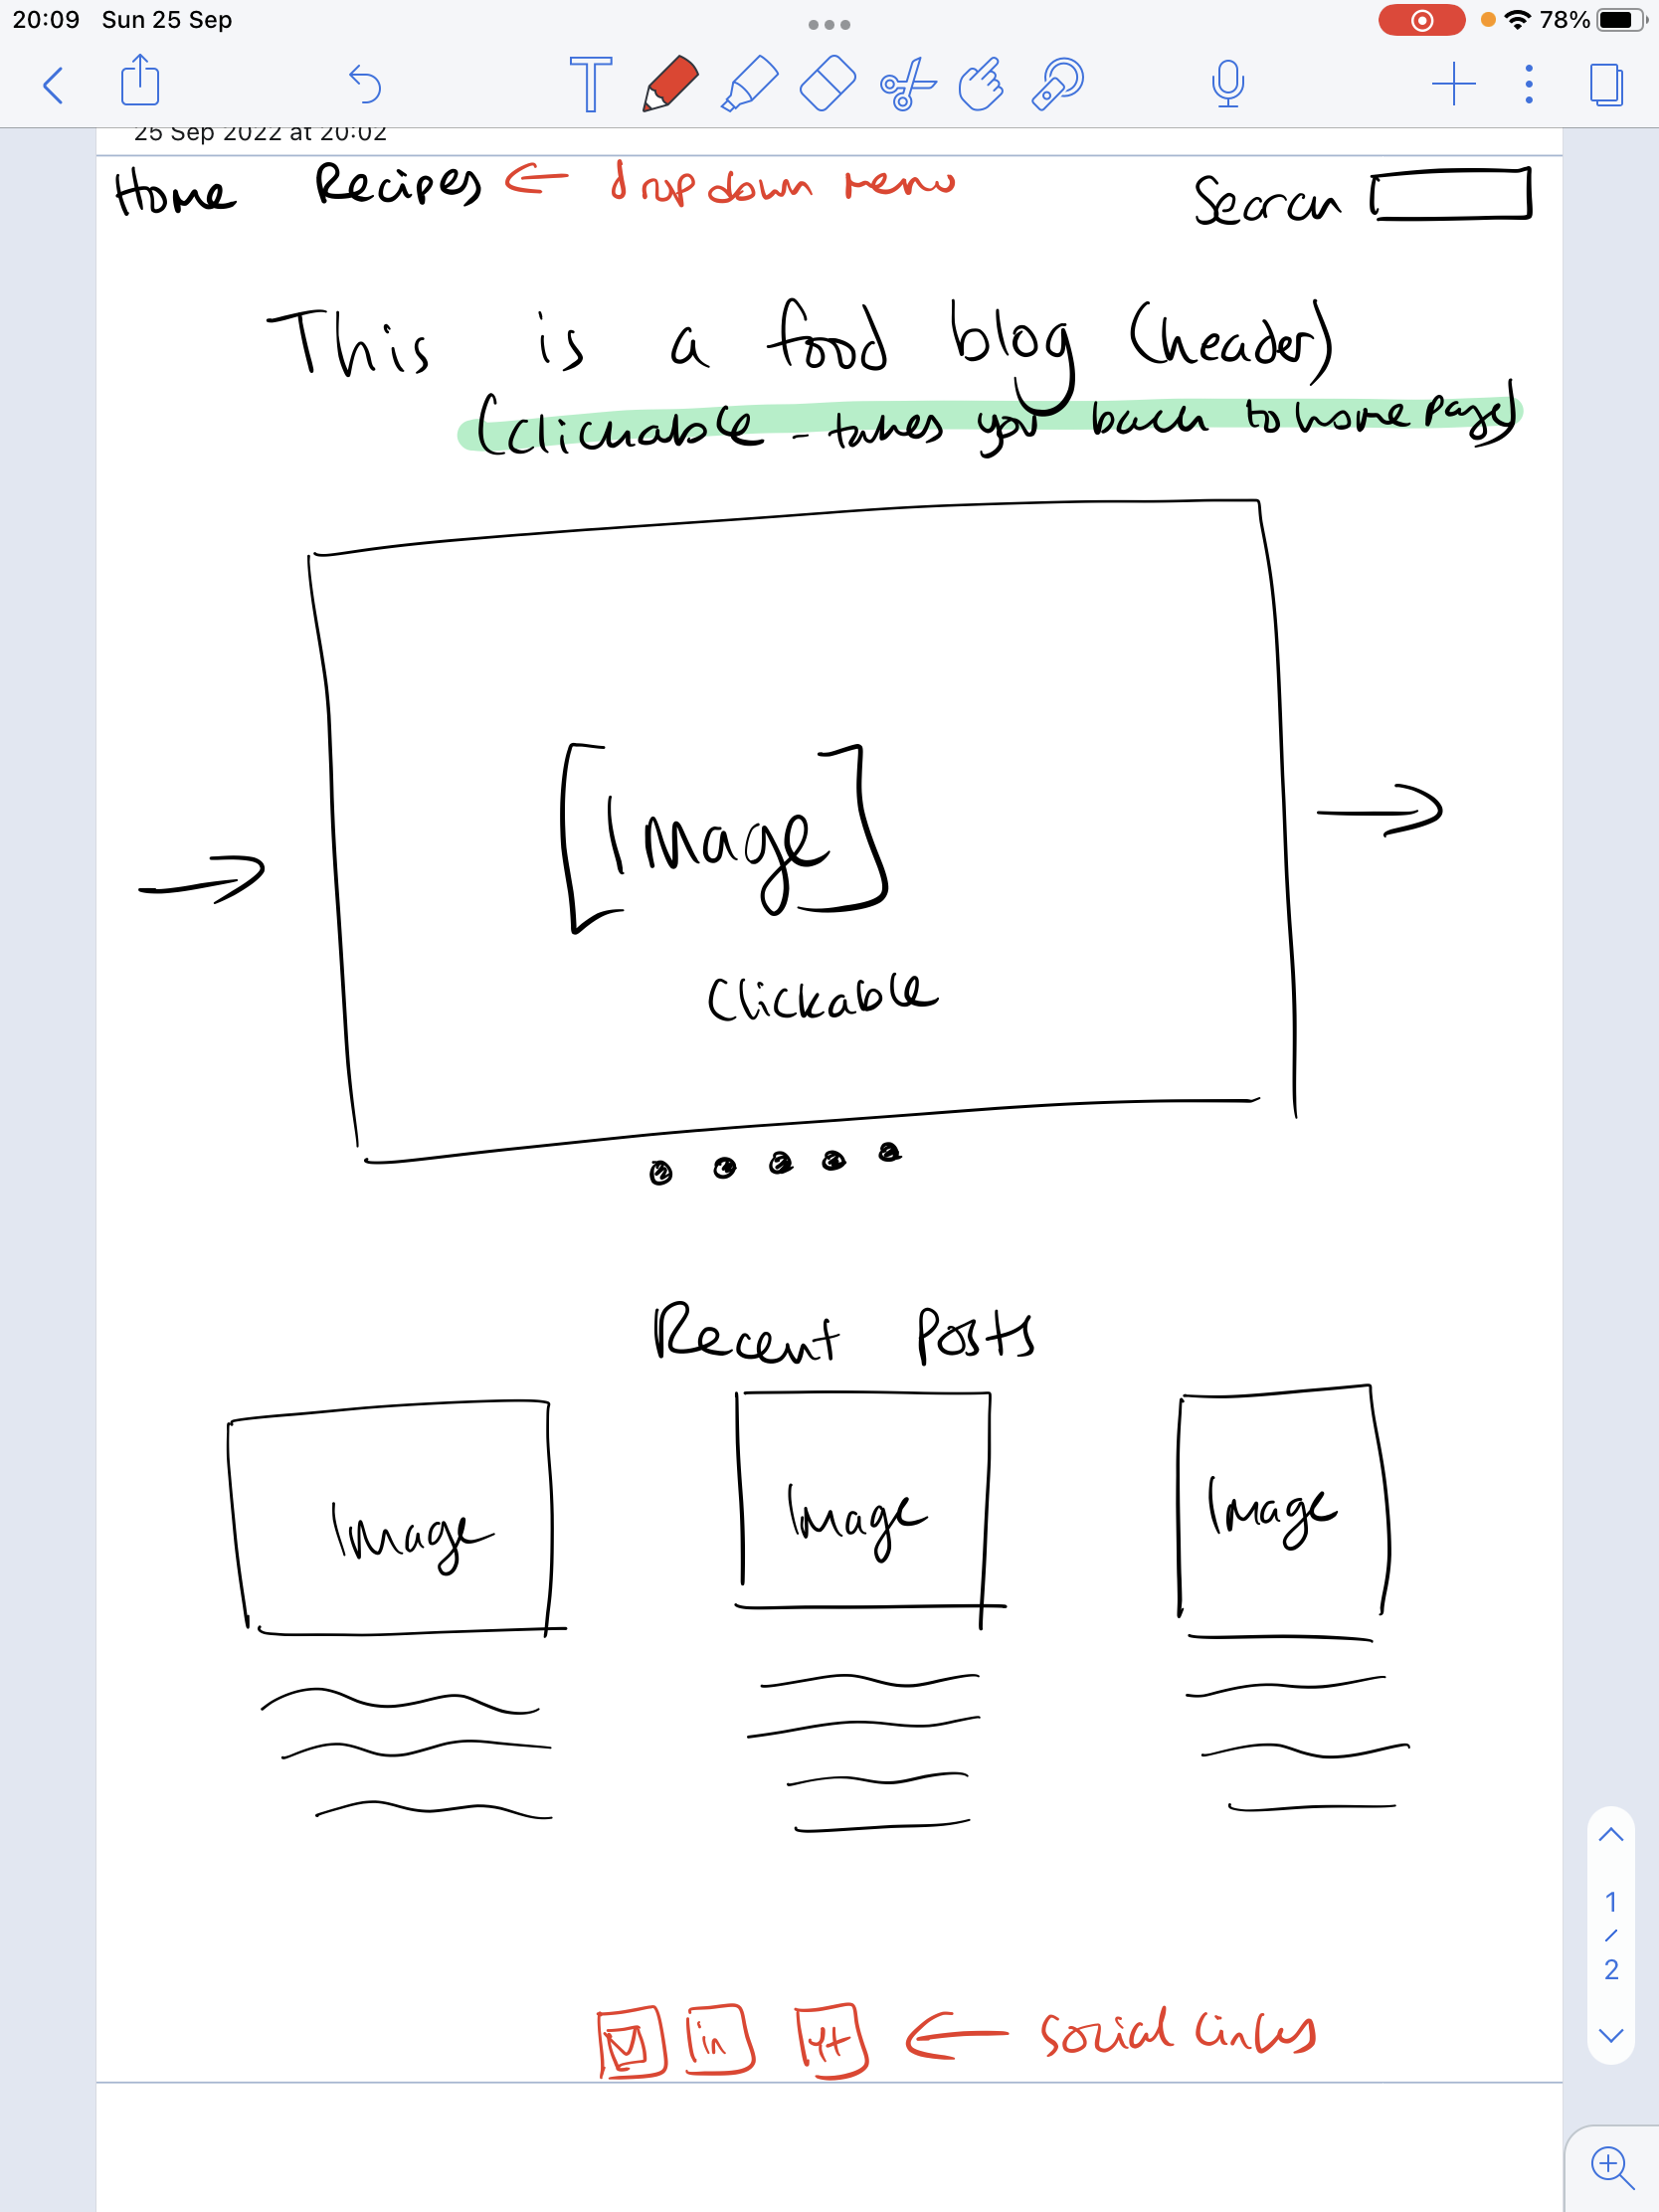 20:09 Sun 25 Sep
78%
25 Sep 2022 at 20:02
Home Recipes ← drop down menu
Search
This is a food blog (header)
(clickable - takes you back to home page)
[Image]
Clickable
Recent Posts
Image Image Image
in yt ← social links
1
/
2